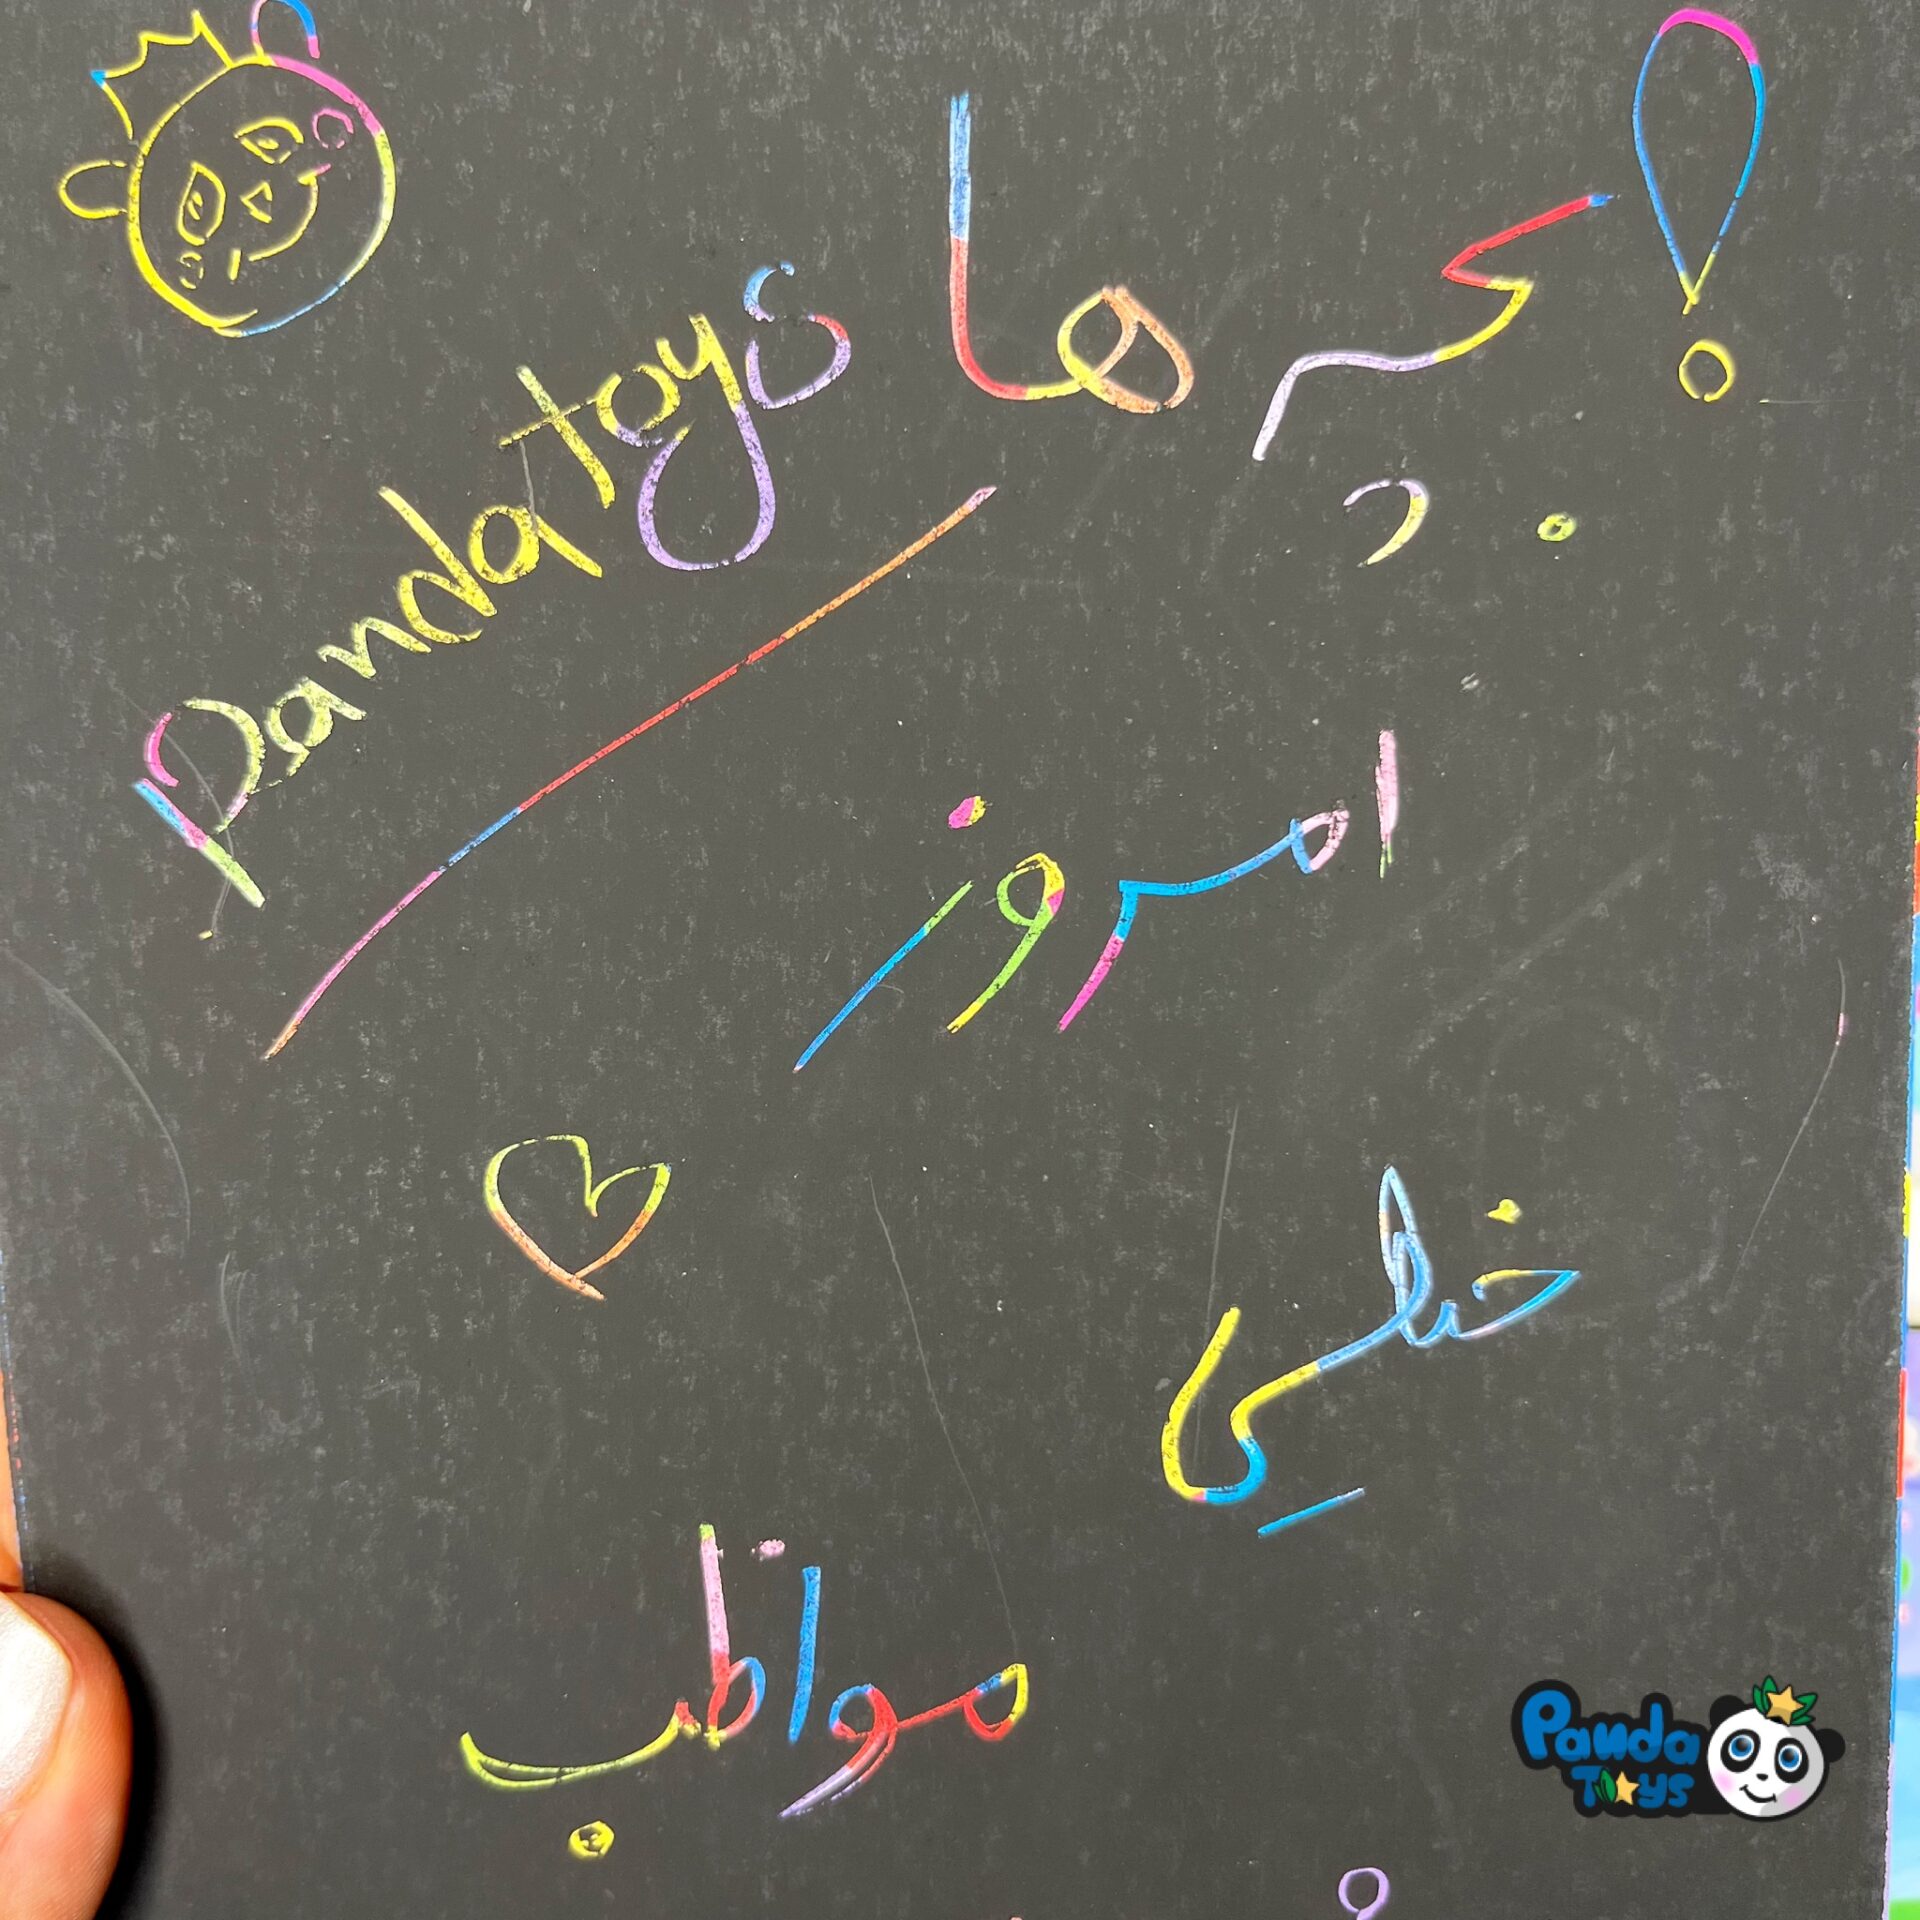 بچه ها !
Pandatoys
امروز
خیلی
مواظب
Panda
Toys